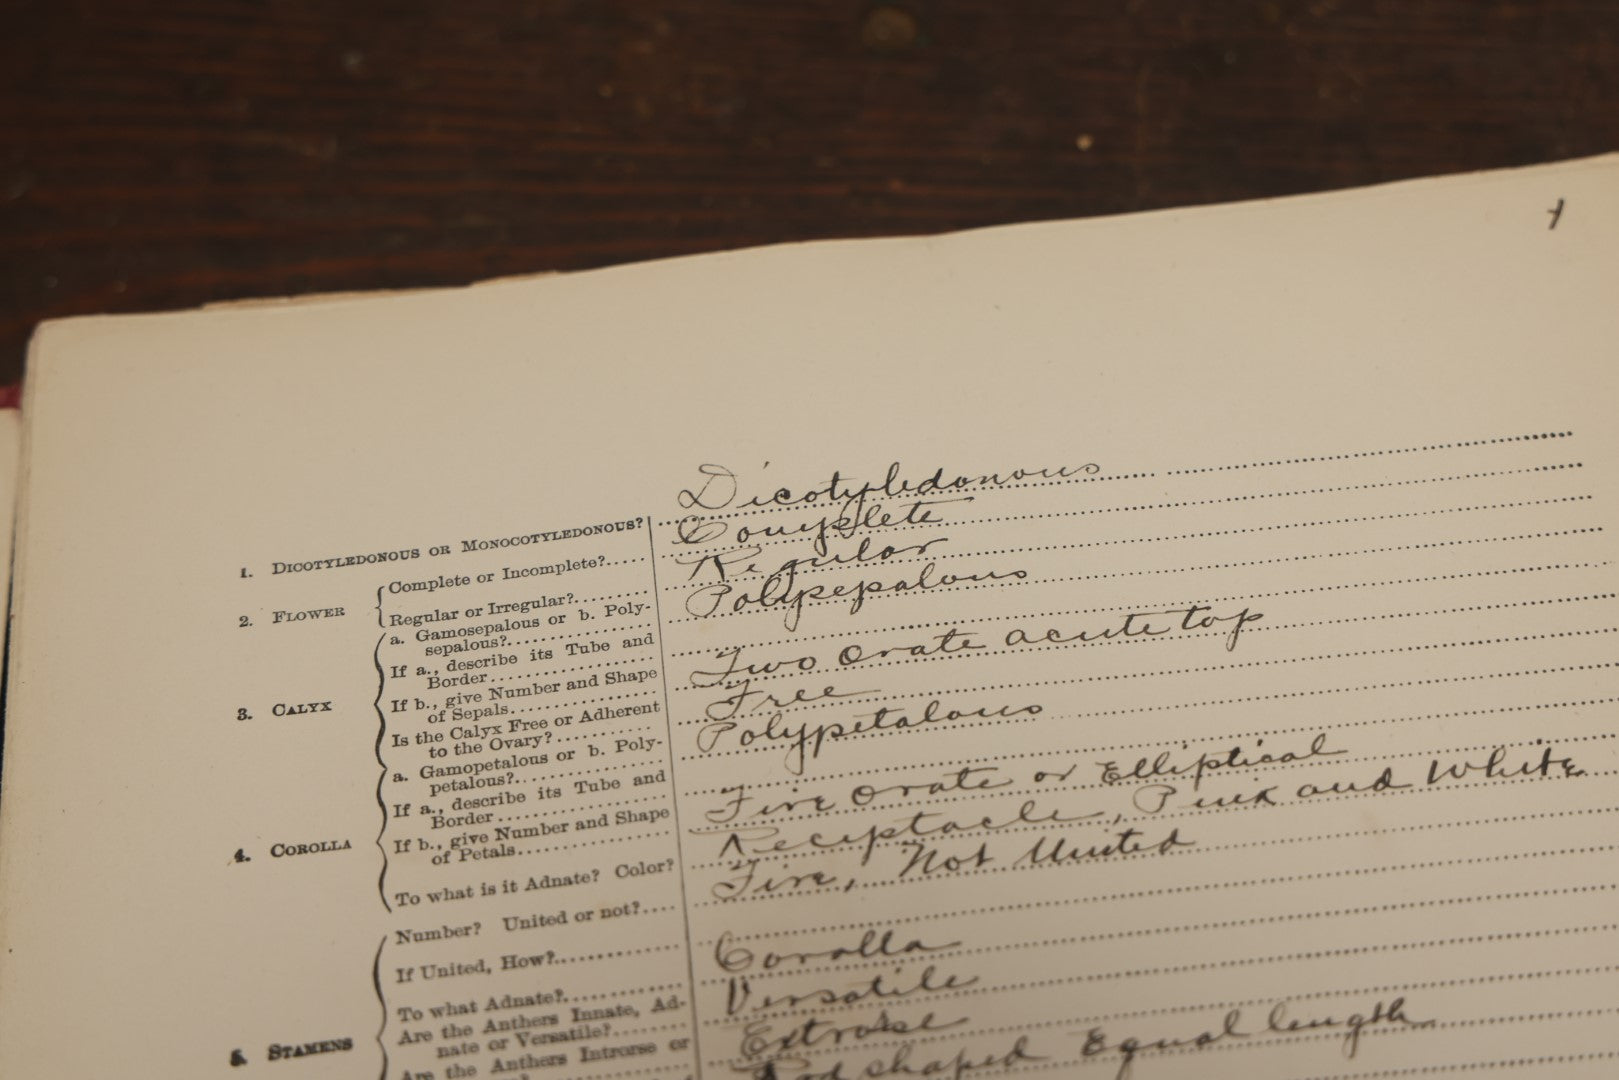 1. DICOTYLEDONOUS OR MONOCOTYLEDONOUS? Dicotyledonous
2. FLOWER
Complete or Incomplete?..... Complete
Regular or Irregular?........ Regular
3. CALYX
a. Gamosepalous or b. Poly-
sepalous?............... Polysepalous
If a., describe its Tube and
Border...............
If b., give Number and Shape
of Sepals............... Two ovate acute top
Is the Calyx Free or Adherent
to the Ovary?.......... Free
4. COROLLA
a. Gamopetalous or b. Poly-
petalous?............... Polypetalous
If a., describe its Tube and
Border...............
If b., give Number and Shape
of Petals............... Five ovate or Elliptical
To what is it Adnate? Color? Receptacle, Pink and White
5. STAMENS
Number? United or not?.... Five, Not United
If United, How?.............
To what Adnate?............ Corolla
Are the Anthers Innate, Ad-
nate or Versatile?........ Versatile
Are the Anthers Introrse or
Extrorse
Rod shaped Equal length